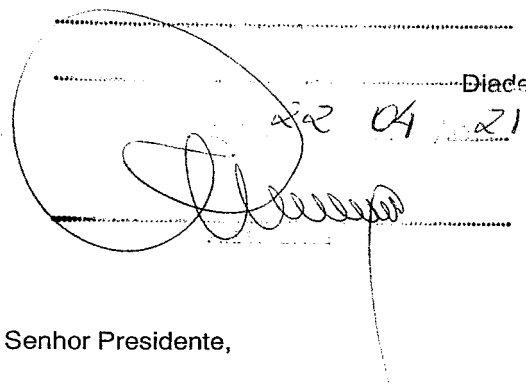 Diade
22 04 21
Senhor Presidente,